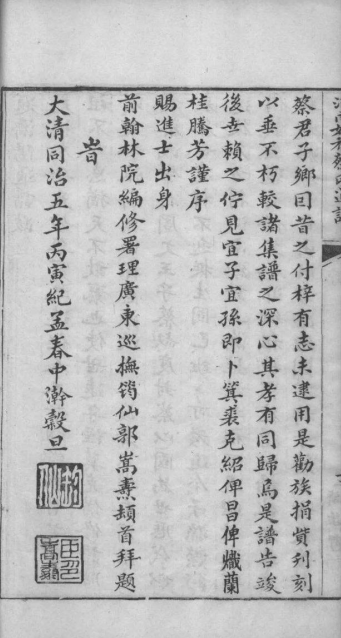 蔡君子鄉曰昔之付梓有志未逮用是勸族捐貲刊刻
以垂不朽較諸集譜之深心其孝有同歸焉是譜告竣
後世賴之佇見宜子宜孫即卜箕裘克紹俾昌俾熾蘭
桂騰芳謹序
賜進士出身
前翰林院編修署理廣東巡撫筠仙郭嵩燾頓首拜題
旹
大清同治五年丙寅紀孟春中澣穀旦